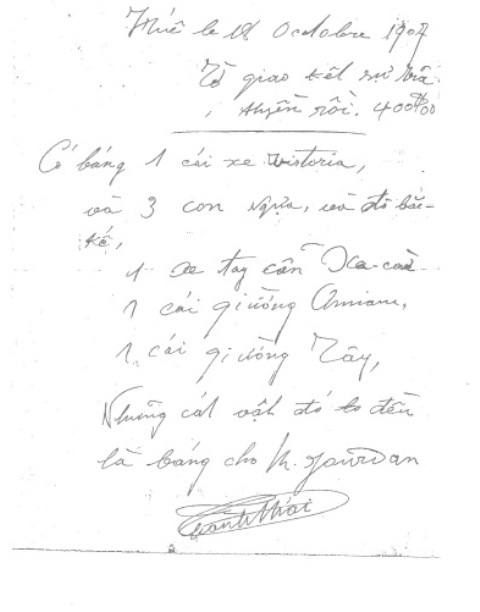 Huê le 18 Octobre 1907
Tờ giao kết sự mà
thyền rồi. 400$00
Có báng 1 cái xe victoria,
và 3 con ngựa, và đồ bắc-
kế,
1 xe tay cần
1 cái giường Annam,
1 cái giường Tây,
Những cát vật đó đều
là báng cho M. Jourdan